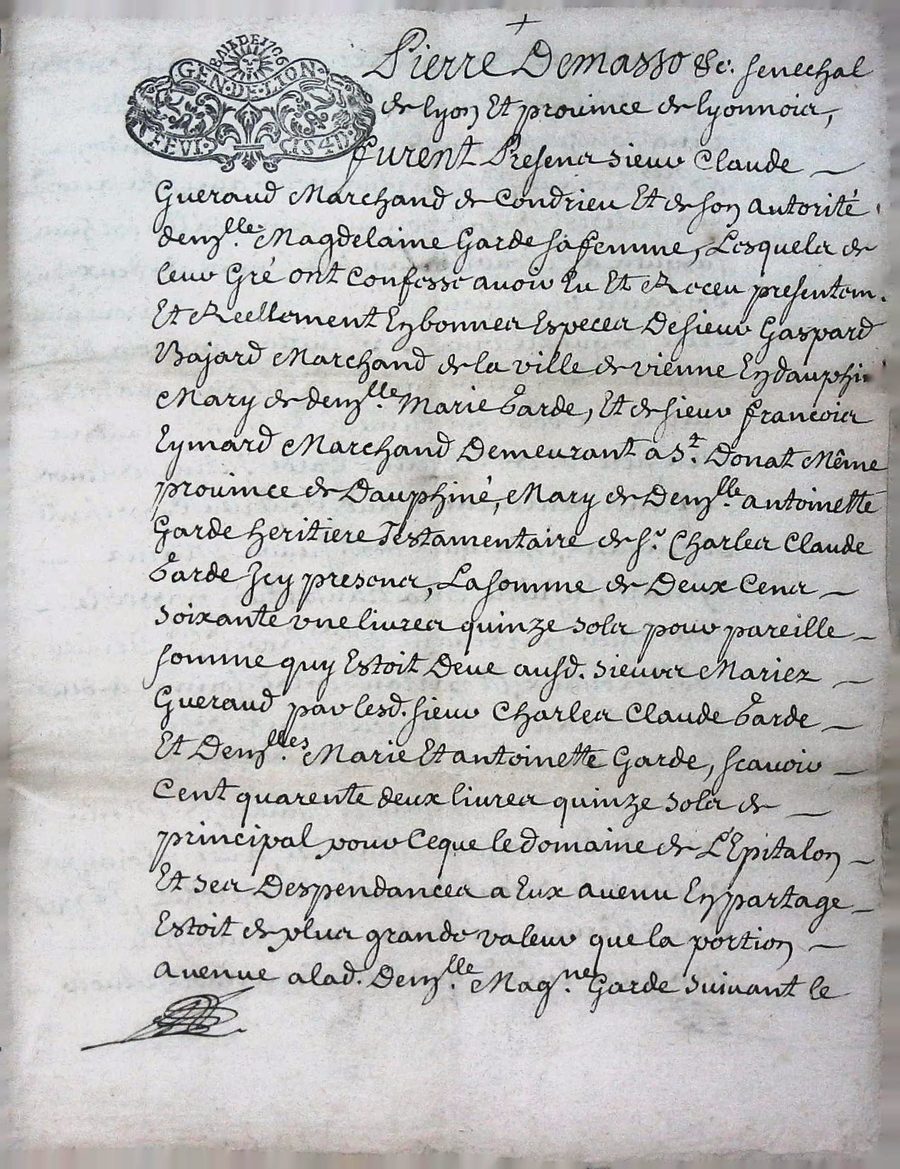 GEN·DE·LION·
Pierre Demasso &c. senechal
de lyon Et prouince de lyonnois,
furent Presens sieur Claude
Gueraud Marchand de Condrieu Et de son autorité
demlle. Magdelaine Garde sa femme, Lesquels de
leur Gré ont Confessé auoir Eu Et Receu presentem.
Et Reellement En bonnes Especes De sieur Gaspard
Bajard Marchand de la ville de vienne En dauphi
Mary de demlle. Marie Garde, Et de sieur francois
Eymard Marchand Demeurant a St. Donat Même
prouince de Dauphiné, Mary de Demlle. antoinette
Garde heritiere Testamentaire de Sr. Charles Claude
Garde Icy presens, La somme de Deux Cens
soixante vne liures quinze sols pour pareille
somme quy Estoit Deue ausd. sieurs Mariez
Gueraud par lesd. sieur Charles Claude Garde
Et Demlles. Marie Et antoinette Garde, scauoir
Cent quarente deux liures quinze sols de
principal pour Ceque le domaine de L'Epitalon
Et ses Despendances a Eux auenu En partage
Estoit de plus grande valeur que la portion
auenue a lad. Demlle. Magne. Garde suiuant le